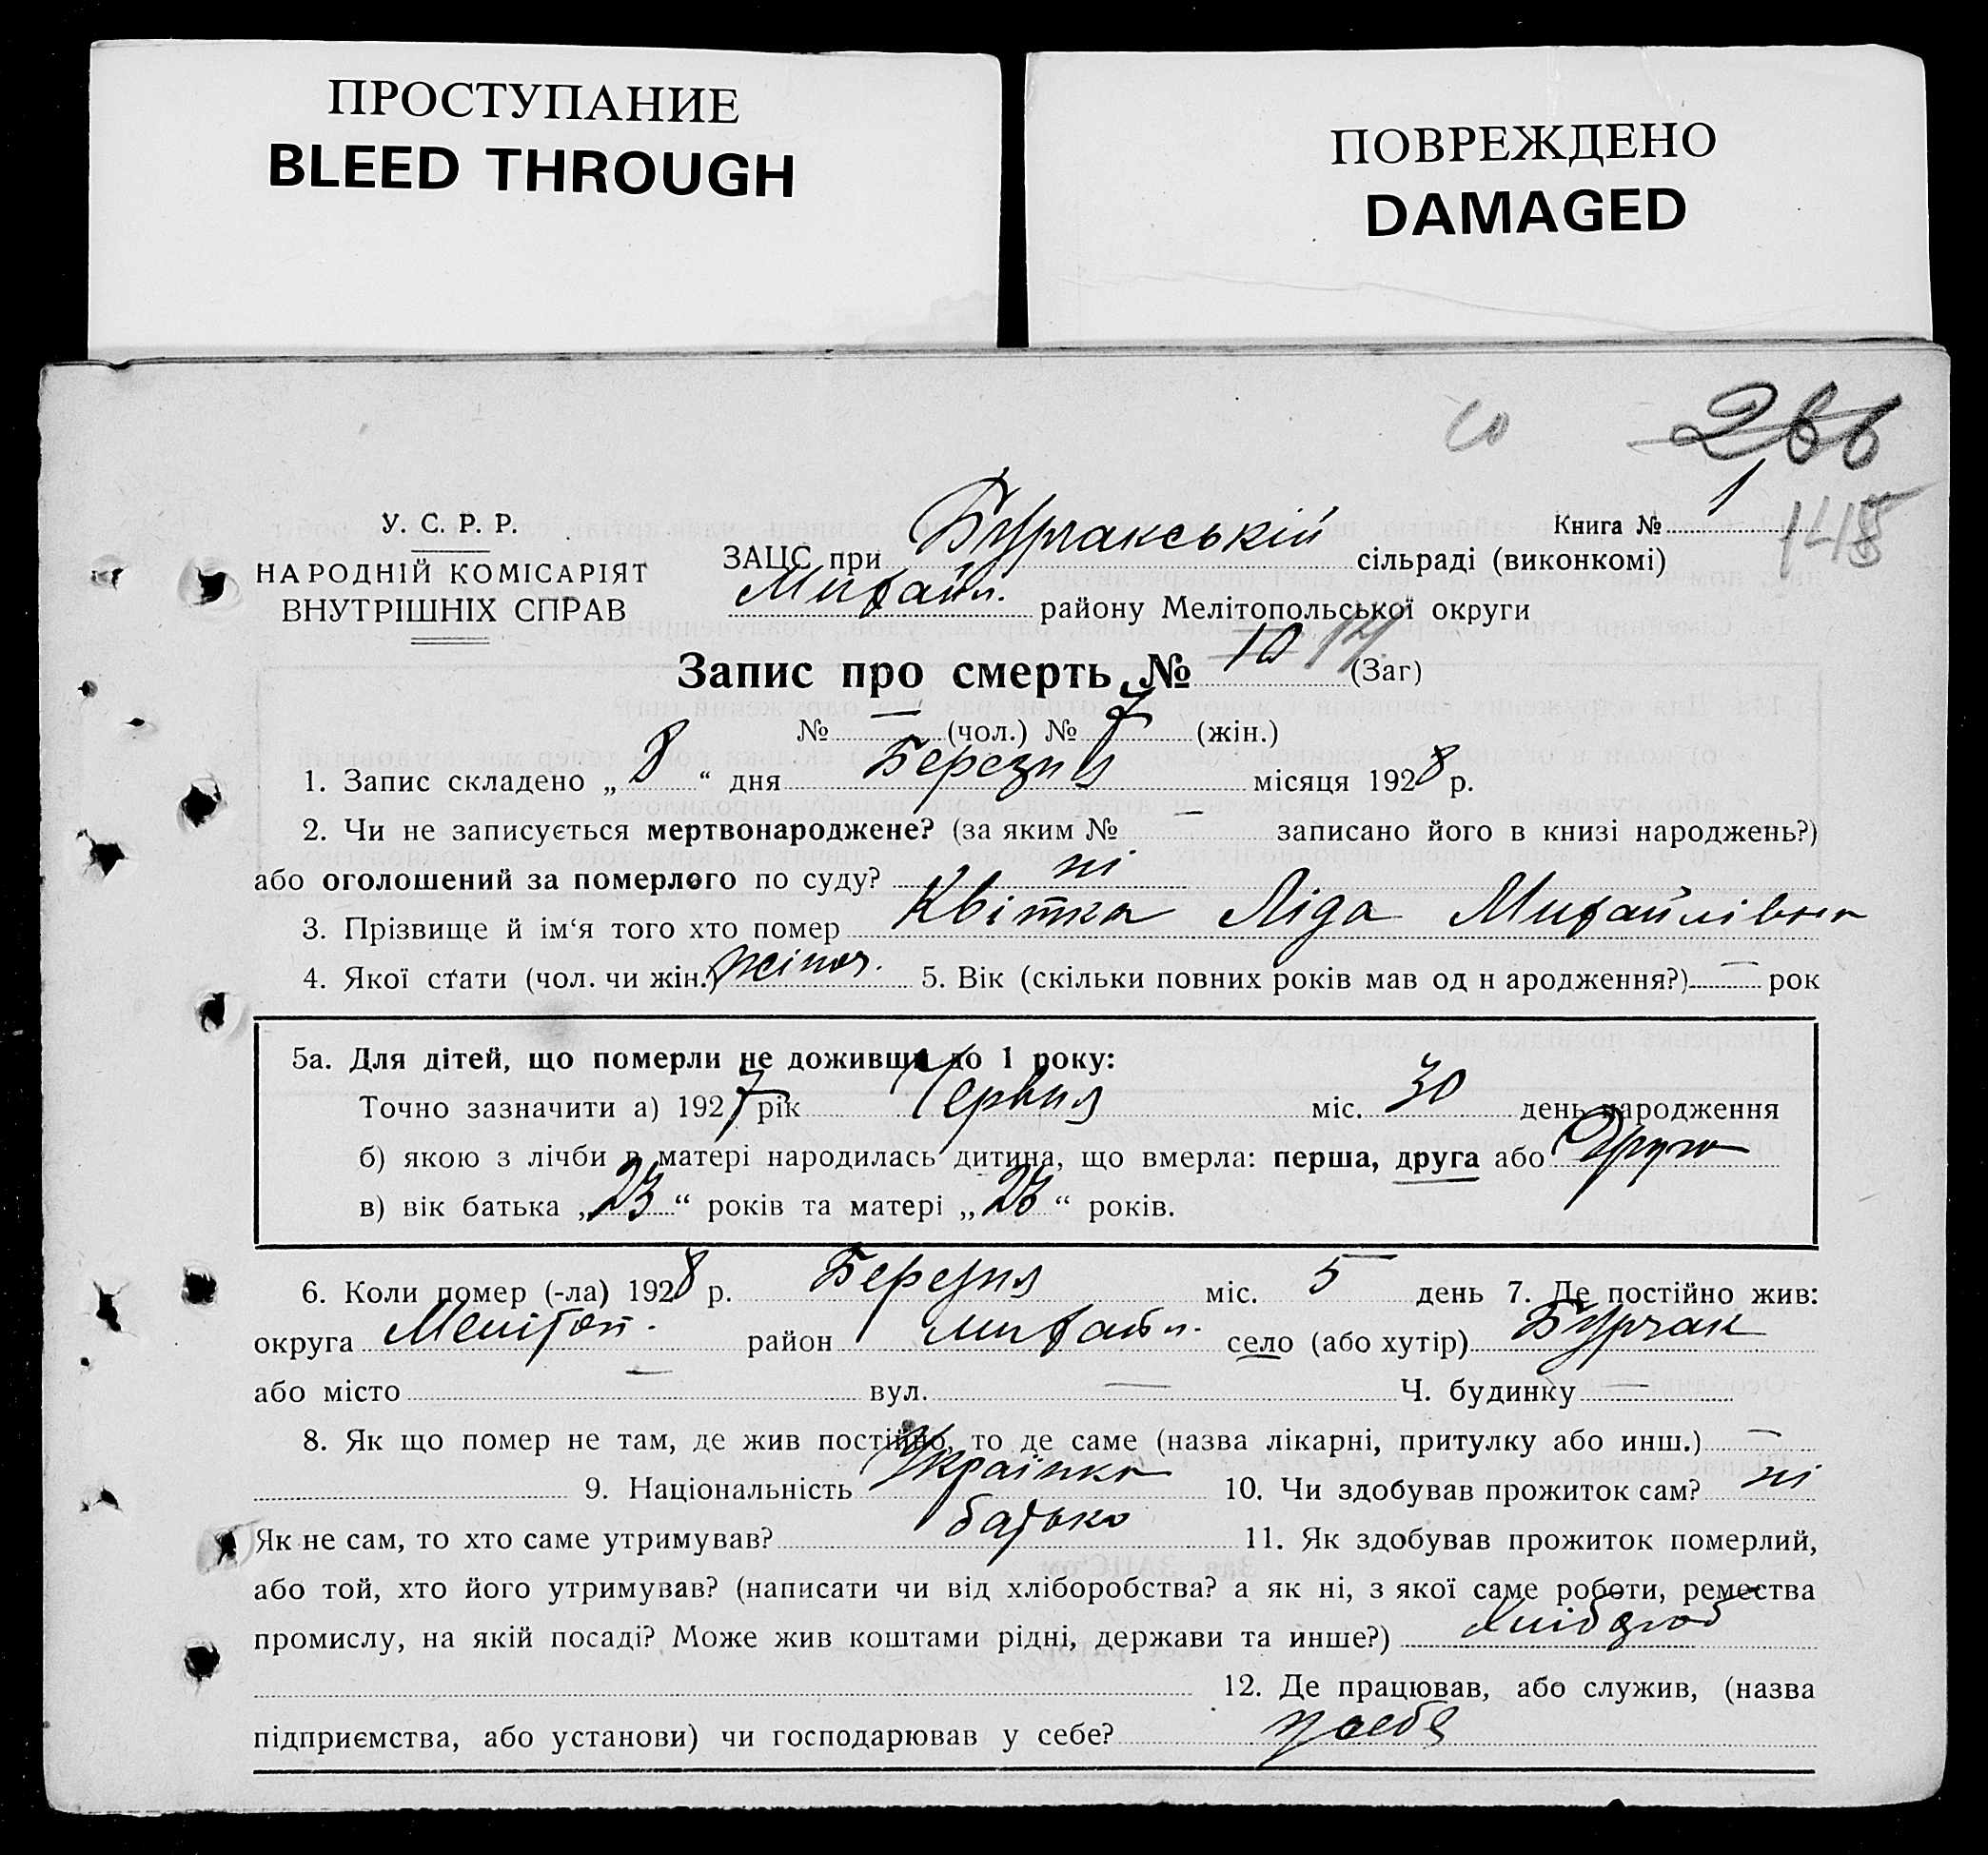 ПРОСТУПАНИЕ
BLEED THROUGH
ПОВРЕЖДЕНО
DAMAGED
266
145
У. С. Р. Р.
НАРОДНІЙ КОМІСАРІЯТ
ВНУТРІШНІХ СПРАВ
Книга № 1
ЗАЦС при Бурчакській сільраді (виконкомі)
Михайл. району Мелітопольської округи
Запис про смерть № 10 14 (Заг)
№ — (чол.) № 7 (жін.)
1. Запис складено „ 8 “ дня Березня місяця 1928 р.
2. Чи не записується мертвонароджене? (за яким № — записано його в книзі народжень?)
або оголошений за померлого по суду? ні
3. Прізвище й ім‘я того хто помер Квітка Ліда Михайлівна
4. Якої стати (чол. чи жін.) жіноч. 5. Вік (скільки повних років мав од н ародження?) — рок
5а. Для дітей, що померли не доживши до 1 року:
Точно зазначити а) 1927 рік Червня міс. 30 день народження
б) якою з лічби в матері народилась дитина, що вмерла: перша, друга або друга
в) вік батька „ 23 “ років та матері „ 23 “ років.
6. Коли помер (-ла) 1928 р. Березня міс. 5 день 7. Де постійно жив:
округа Меліton. район Михайл. село (або хутір) Бурчак
або місто — вул. — Ч. будинку —
8. Як що помер не там, де жив постійно, то де саме (назва лікарні, притулку або инш.) —
9. Національність Українка 10. Чи здобував прожиток сам? ні
Як не сам, то хто саме утримував? батько 11. Як здобував прожиток померлий,
або той, хто його утримував? (написати чи від хліборобства? а як ні, з якої саме роботи, ремества
промислу, на якій посаді? Може жив коштами рідні, держави та инше?)
12. Де працював, або служив, (назва
підприємства, або установи) чи господарював у себе? у себе